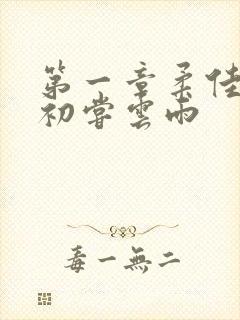 第一章柔佳
初嘗雲雨
毒一無二